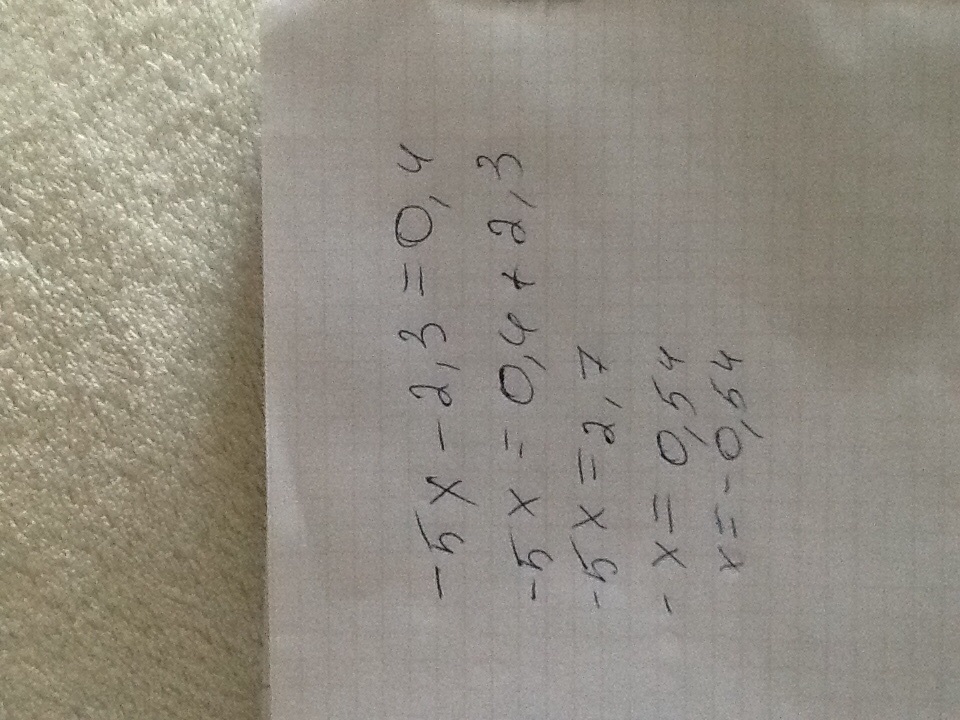 -5x-2,3=0,4
-5x=0,4+2,3
-5x=2,7
-x=0,54
x=-0,54